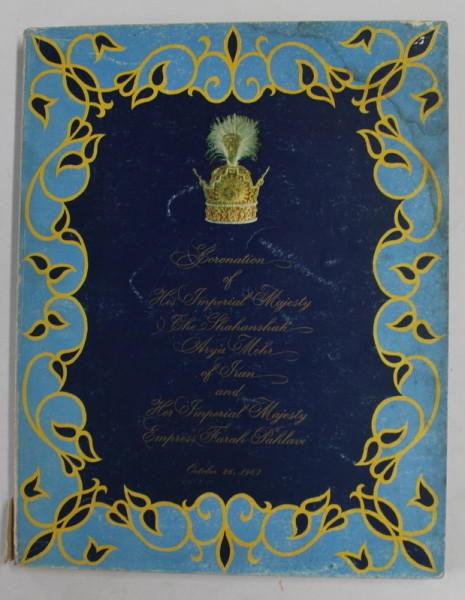 Coronation
of
His Imperial Majesty
The Shahanshah
Arya Mehr
of Iran
and
Her Imperial Majesty
Empress Farah Pahlavi
October 26, 1967